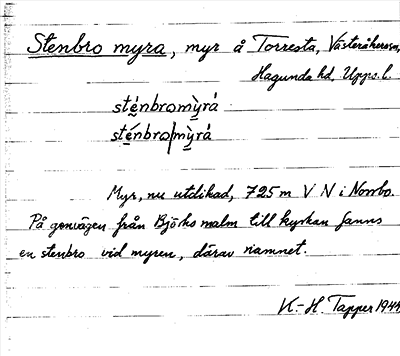 Stenbro myra, myr å Torresta, Västeråkers sn,
Hagunda hd. Upps. l.
sténbromỳrá
sténbro|mỳrá
Myr, nu utdikad, 725 m V N i Norrbo.
På genvägen från Björksmalm till kyrkan fanns
en stenbro vid myren, därav namnet.
K.-H. Tapper 1944